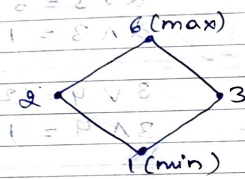 6 (max)
2 3
1 (min)